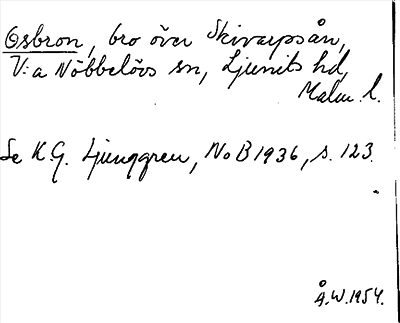 Osbron, bro över Skivarpsån,
V:a Nöbbelövs sn, Ljunits hd,
Malm. l.
Se K.G. Ljunggren, NoB 1936, s. 123.
Å.W. 1954.